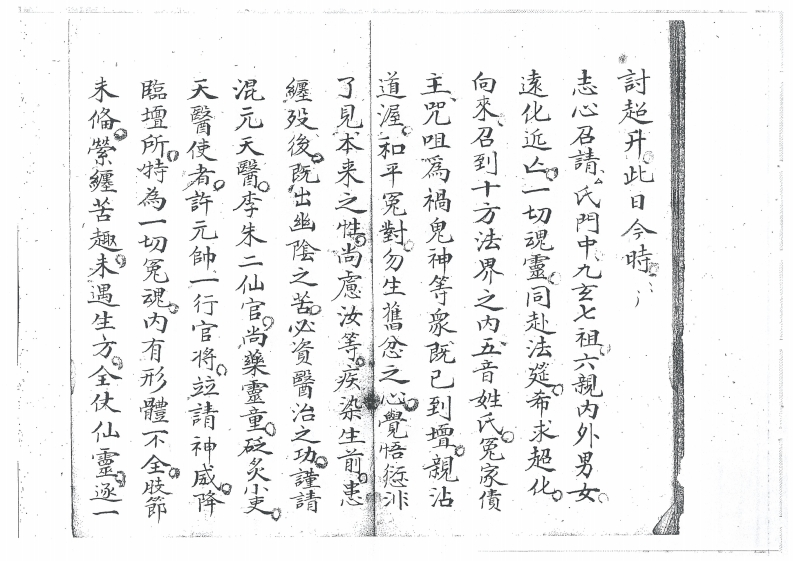 討超升此日今時
志心召請厶氏門中九玄七祖六親內外男女
遠化近亡一切魂靈同赴法筵希求超化
向來召到十方法界之內五音姓氏冤家債
主咒咀爲禍鬼神等衆既已到壇親沾
道渥和平冤對勿生舊忿之心覺悟愆非
了見本来之性尚慮汝等疾染生前患
纏殁後既出幽陰之苦必資醫治之功謹請
混元天醫李朱二仙官尚藥靈童砭炙小吏
天醫使者許元帥一行官將竝請神威降
臨壇所特為一切冤魂內有形體不全肢節
未俻縈纏苦趣未遇生方全仗仙靈逐一